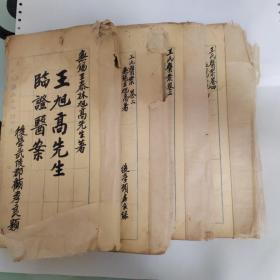 無錫王泰林旭高先生著
王旭高先生
臨證醫案
後學武陵郡顧孝良題
王氏醫案 卷二
無錫王旭高著
後學顧孝良錄
王氏醫案 卷三
王氏醫案 卷四